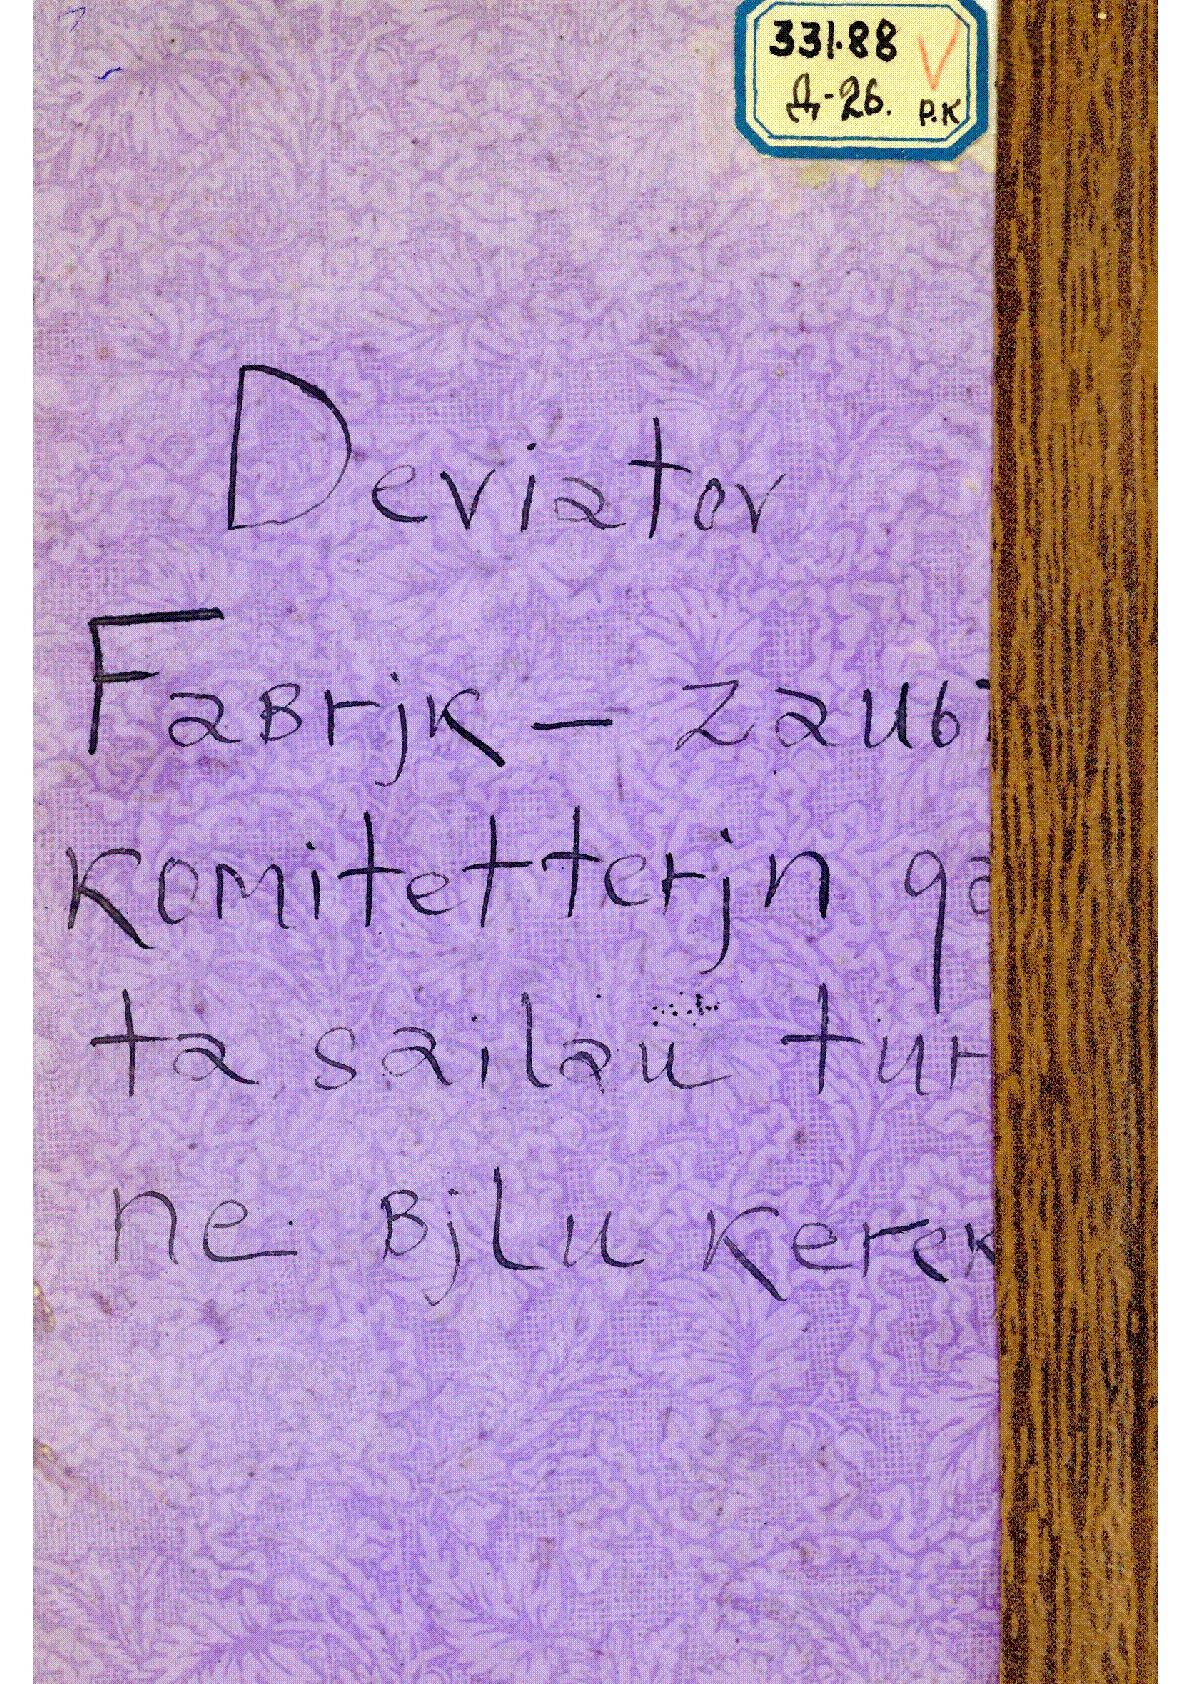 331.88
Д-26. Р.К
Deviatov
Fabrjk - zaub
komitetterjn qa
ta sailau tur
ne bjlu kerek